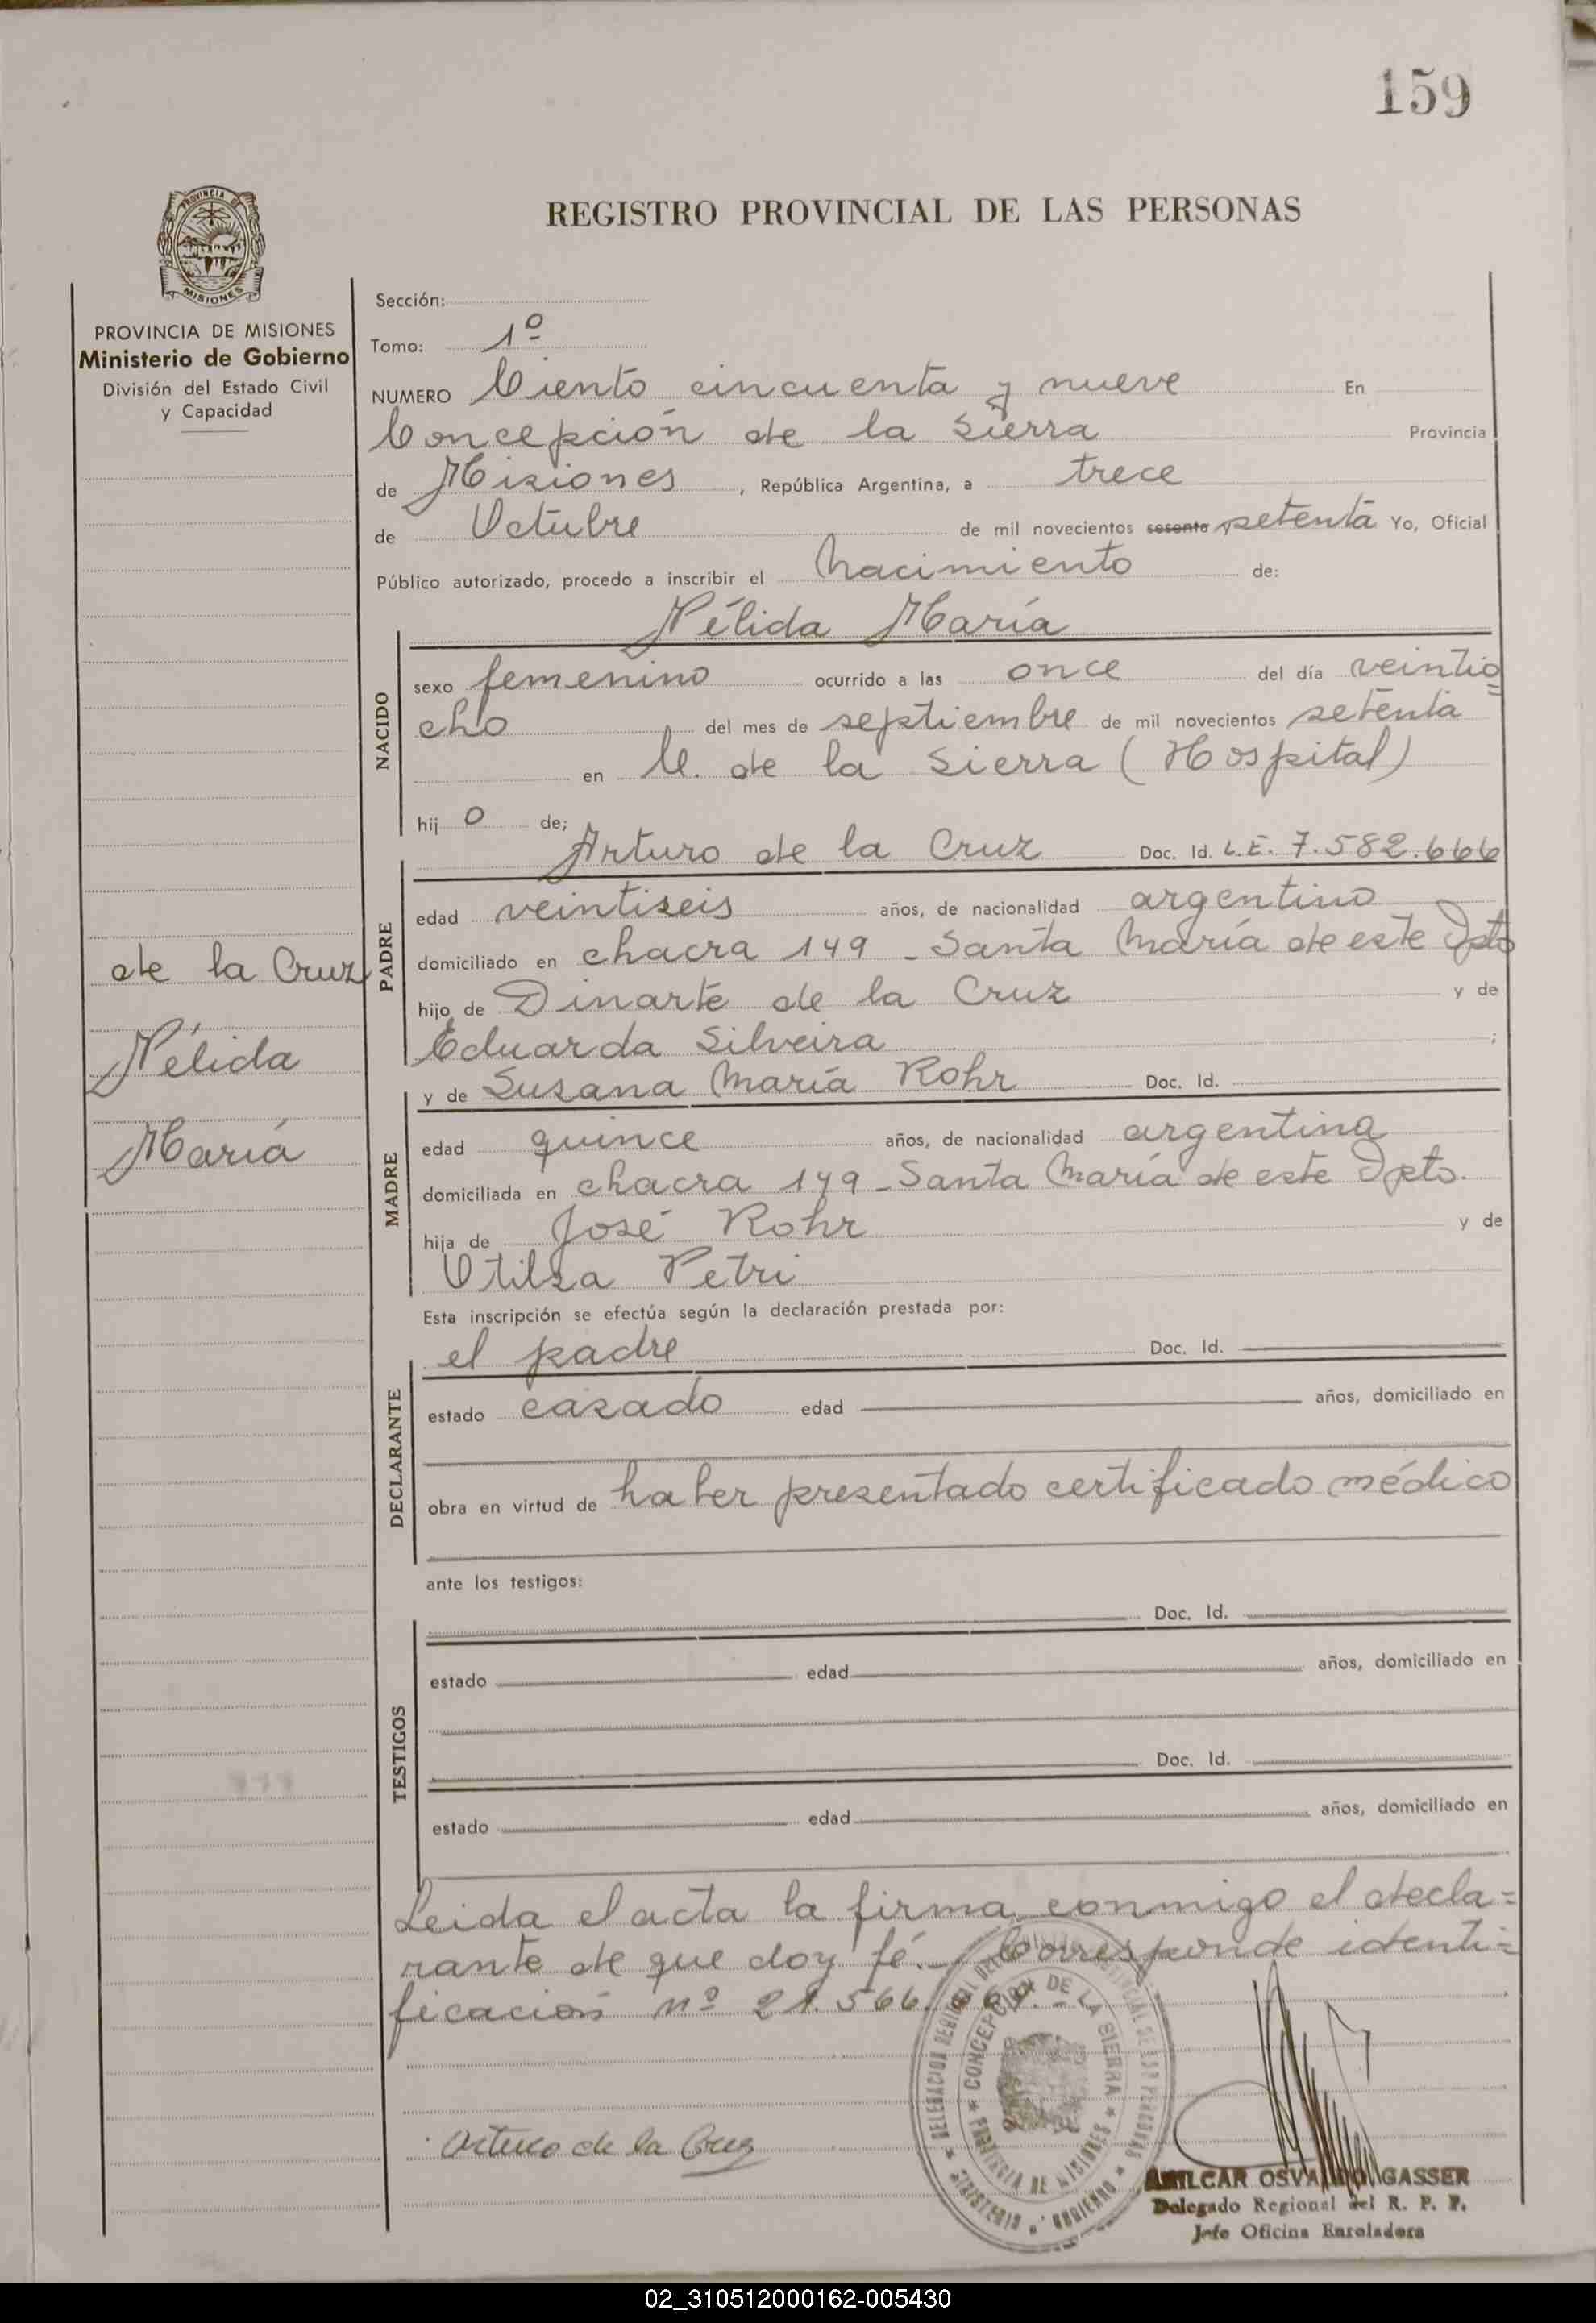 159
PROVINCIA DE MISIONES
REGISTRO PROVINCIAL DE LAS PERSONAS
PROVINCIA DE MISIONES
Ministerio de Gobierno
División del Estado Civil
y Capacidad
Sección:
Tomo: 1º
NUMERO Ciento cincuenta y nueve En
Concepción de la Sierra Provincia
de Misiones, República Argentina, a trece
de Octubre de mil novecientos sesenta setenta Yo, Oficial
Público autorizado, procedo a inscribir el nacimiento de:
Nélida María
NACIDO
sexo femenino ocurrido a las once del día veintio=
cho del mes de septiembre de mil novecientos setenta
en C. de la Sierra (Hospital)
hij o de;
Arturo de la Cruz Doc. Id. L.E. 7.582.666
PADRE
edad veintiseis años, de nacionalidad argentino
domiciliado en chacra 149 - Santa María de este Dpto
hijo de Dinarte de la Cruz y de
Eduarda Silveira ;
de la Cruz
Nélida
María
y de Susana María Rohr Doc. Id.
MADRE
edad quince años, de nacionalidad argentina
domiciliada en chacra 149 - Santa María de este Dpto.
hija de José Rohr y de
Otilia Petri
Esta inscripción se efectúa según la declaración prestada por:
el padre Doc. Id.
DECLARANTE
estado casado edad años, domiciliado en
obra en virtud de haber presentado certificado médico
ante los testigos:
Doc. Id.
TESTIGOS
estado edad años, domiciliado en
Doc. Id.
estado edad años, domiciliado en
Leida el acta la firma conmigo el decla=
rante de que doy fé.- Corresponde identi=
ficación nº 21.566.
CONCEPCION DE LA SIERRA
PROVINCIA DE MISIONES
Arturo de la Cruz
AMILCAR OSVALDO GASSER
Delegado Regional del R. P. P.
Jefe Oficina Enroladora
02_310512000162-005430